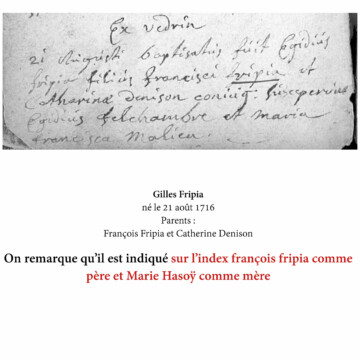 Ex vedrin
21 Augusti baptisatus fuit Egidius
fripia filius francisci fripia et
Catharinae denison coniug: susceperunt
Egidius delchambre et maria
francisca malieu
Gilles Fripia
né le 21 août 1716
Parents :
François Fripia et Catherine Denison
On remarque qu'il est indiqué sur l'index françois fripia comme
père et Marie Hasoÿ comme mère